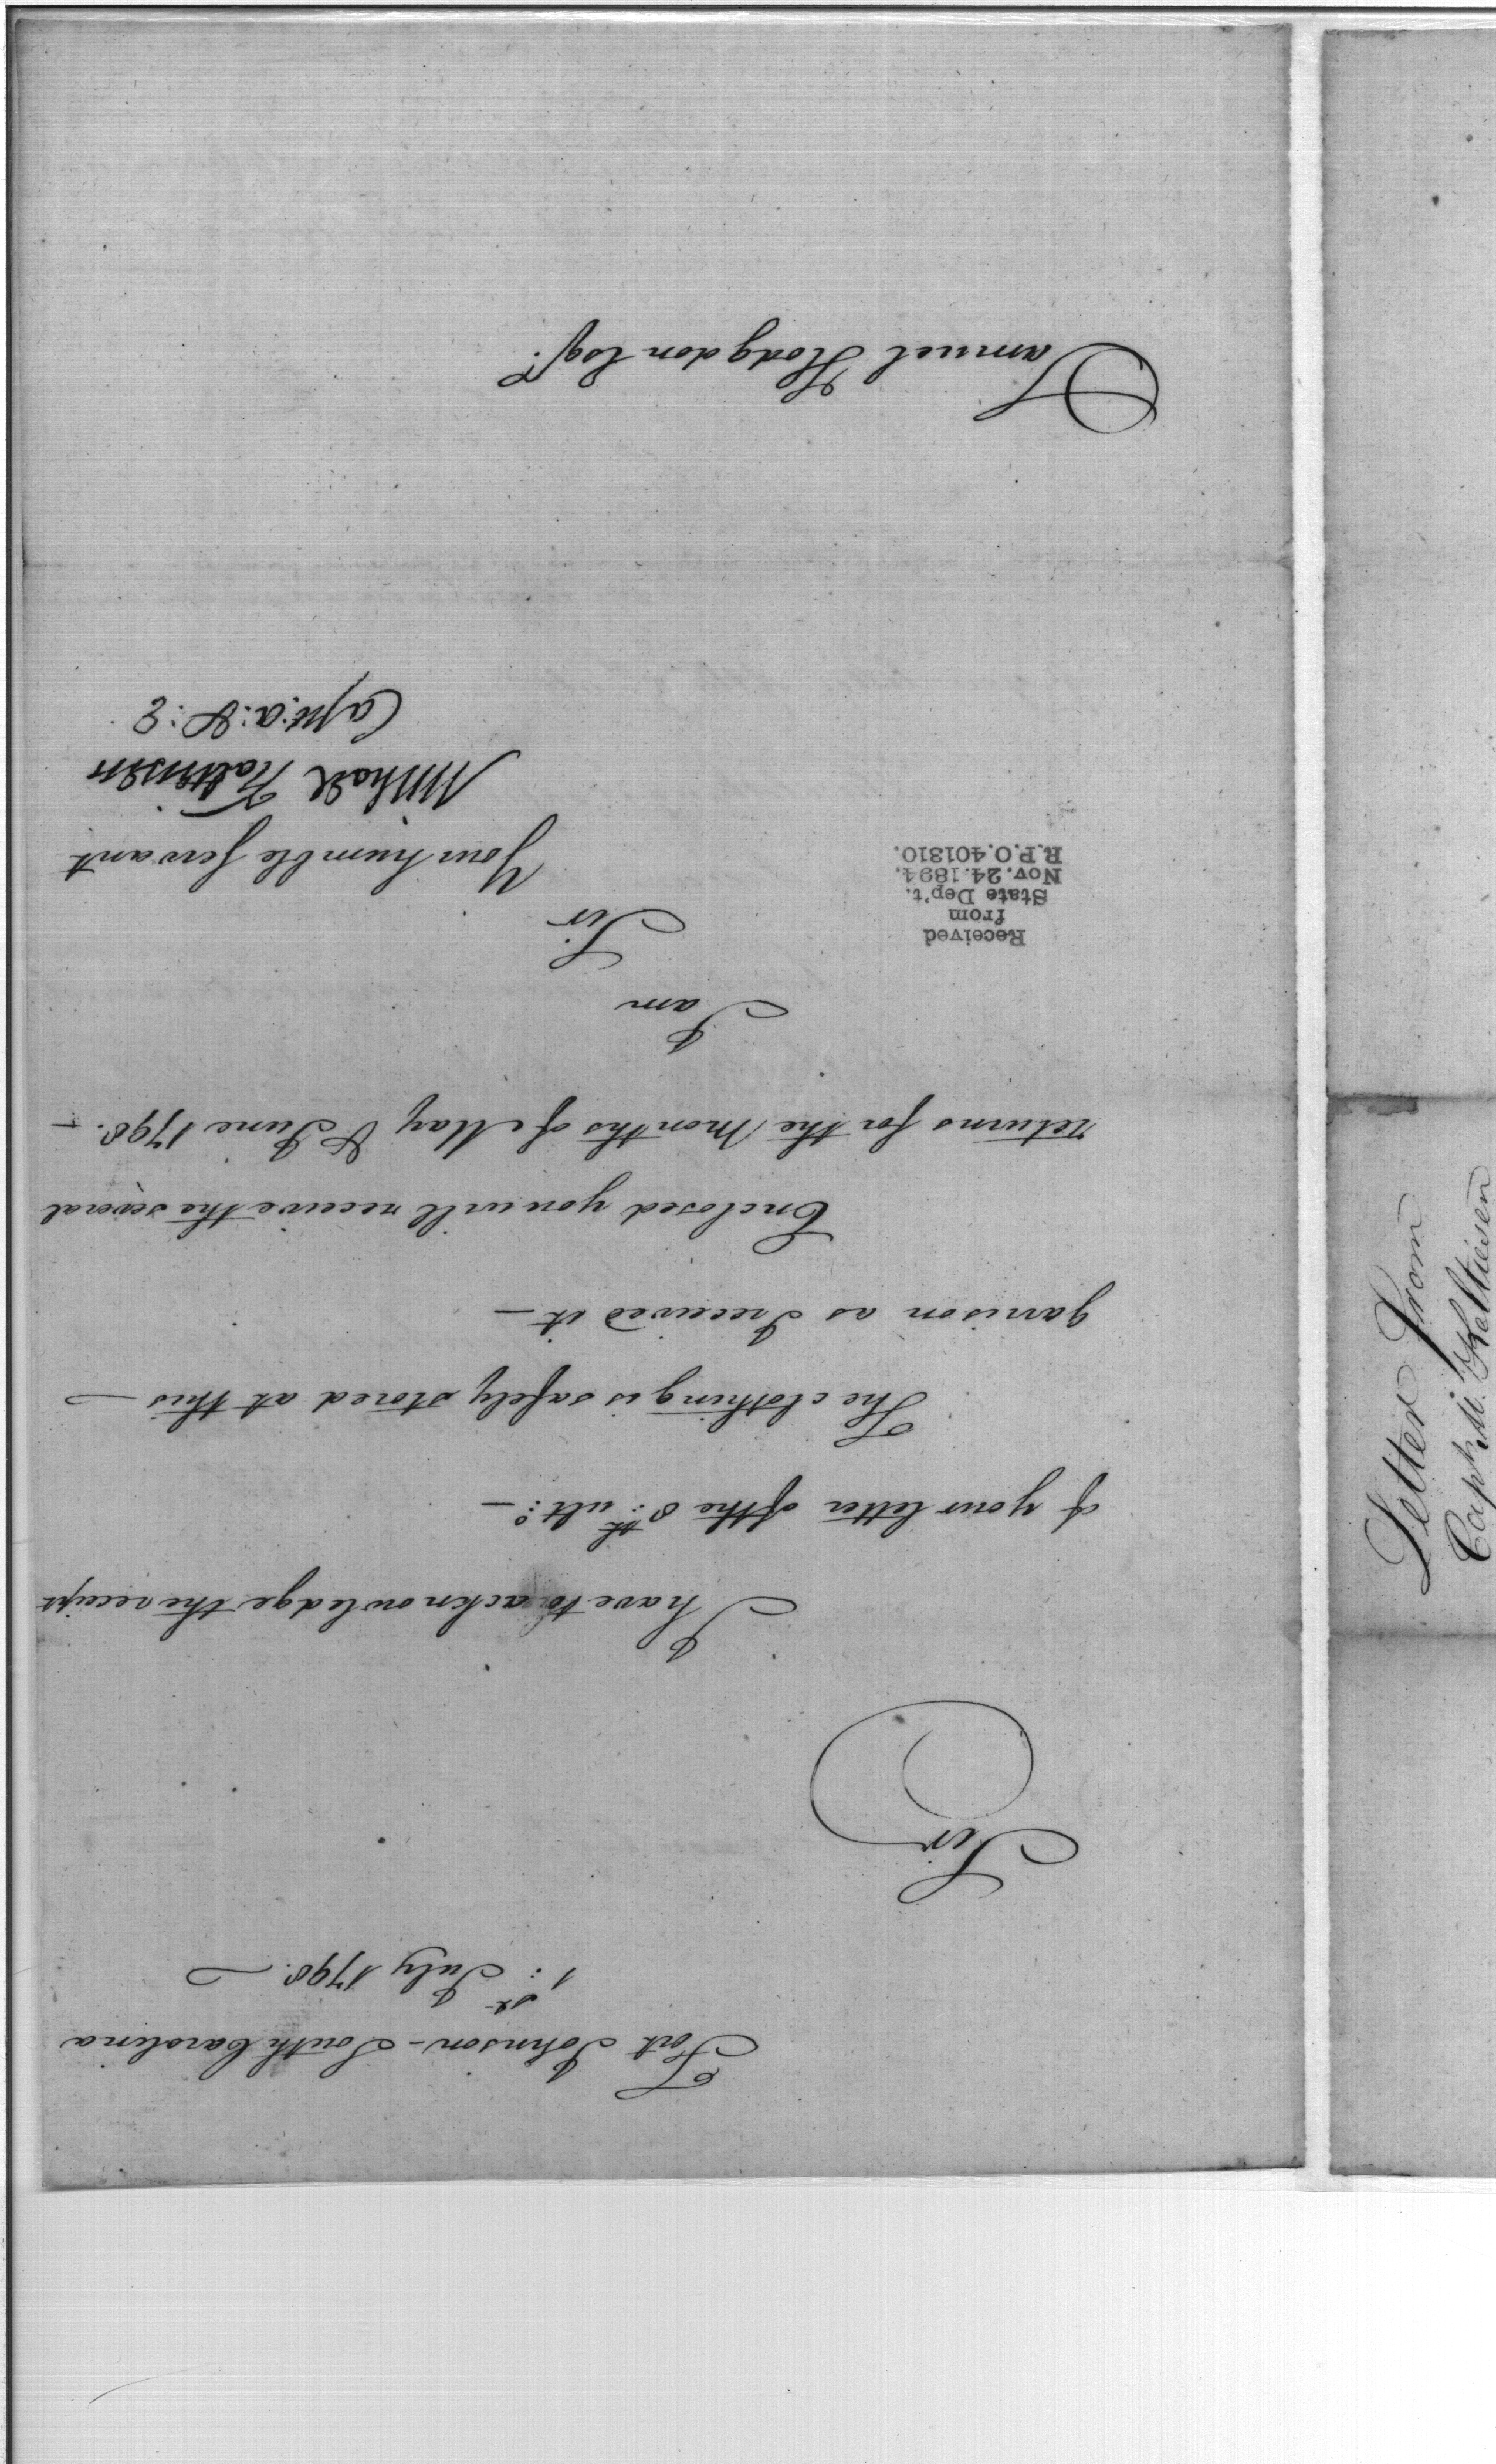 Fort Johnson - South Carolina
1:st July 1798.
Sir
I have to acknowledge the receipt
of your letter of the 8:th ult:o —
The clothing is safely stored at this —
garrison as I received it —
Enclosed you will receive the several
returns for the Months of May & June 1798. —
I am
Sir
Your humble Servant
Michael Kalteisen
Capt: a: & : E
Received
from
State Dep't.
Nov. 24. 1894.
R.P.O. 401810.
Samuel Hodgdon Esqr.
Letter From
Capt. M. Kaltiesen